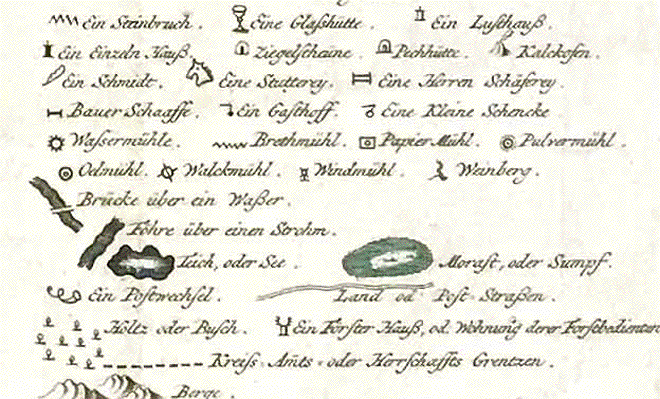 Ein Steinbruch. Eine Glaßhütte. Ein Lusthauß.
Ein Einzeln Hauß. Ziegelscheune. Pechhütte. Kalckofen.
Ein Schmidt. Eine Stutterey. Eine Herren Schäferey.
Bauer Schaaffe. Ein Gasthoff. Eine Kleine Schencke
Waßermühle. Brethmühl. Papier Mühl. Pulvermühl.
Oelmühl. Walckmühl. Windmühl. Weinberg.
Brücke über ein Waßer.
Föhre über einen Strohm.
Teich, oder See. Morast, oder Sumpf.
Ein Postwechsel. Land od: Post-Straßen.
Höltz oder Busch. Ein Förster Hauß, od. Wohnung derer Forstbedienten
Kreiss-Amts-oder Herrschaffts Grentzen.
Berge.